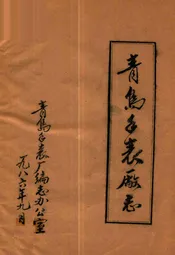 青島手表廠志
青岛手表厂编志办公室
一九八六年九月